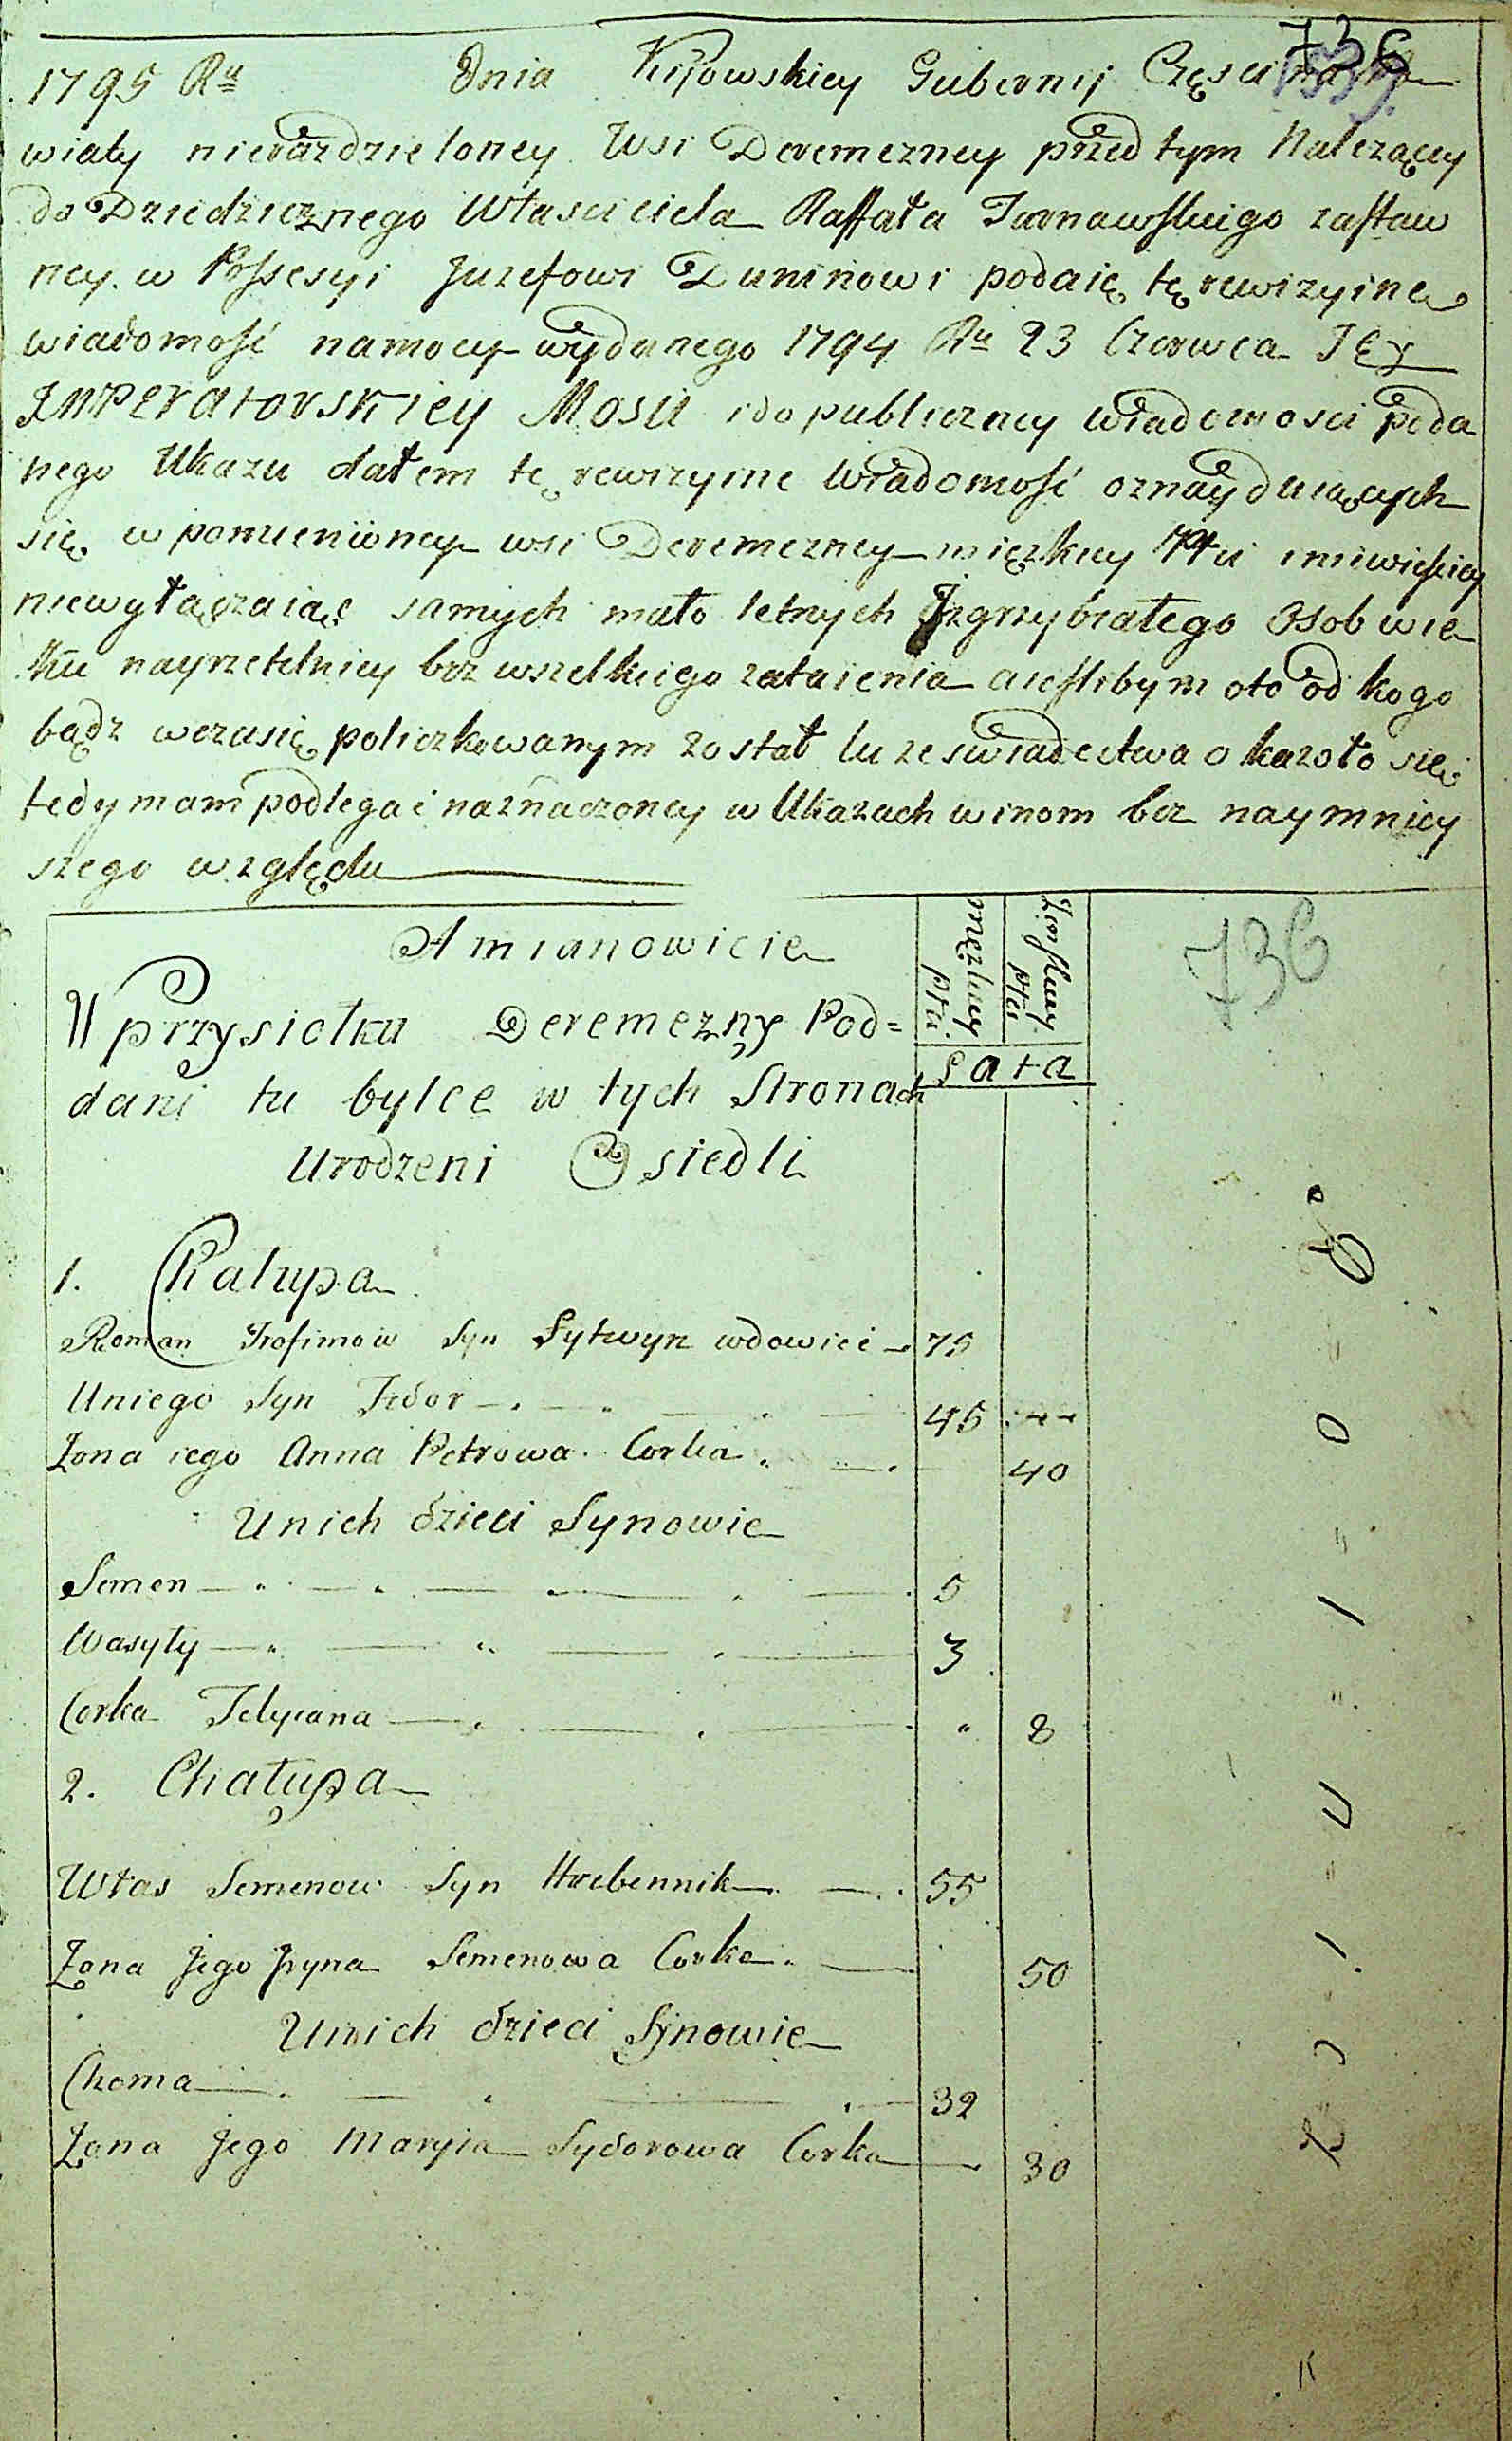 736
1795 Ru Dnia Kijowskiey Gubernij Częsci
wiaty nierazdzieloney Wsi Deremezney przed tym Nalezącey
do Dziedzicznego Własciciela Raffała Tarnawskiego zastaw
ney w Possesyi Juzefowi Duninowi podaię tę rewizyine
wiadomość namocy wydanego 1794 Ru 23 Czerwca JEy
IMPeratorskiey Mosci i do publiczney wiadomosci poda
nego Ukazu dałem tę rewizyine Wiadomość oznayduiących
się w pomienioney wsi Deremezney męzkiey Płci i niewieskiey
niewyłączaiąc samych mało letnych Izgrzybiałego Osob wie
ku nayrzetelniey bez wszelkiego zataienia aiesliby m oto od kogo
bądz wczasię policzkowanym został lu ze swiadectwa o kazoło się
tedy mam podlegać naznaczoney w Ukazach winom bez naymniey
szego względu
A mianowicie
męzkiey płci
Zenskiey płci
Lata
736
W Przysiołku Deremezny Pod=
dani tu bylce w tych Stronach
Urodzeni Osiedli
1. Chałupa
Roman Trofimow Syn Łytwyn wdowiec 75
Uniego Syn Fedor 45
Zona iego Anna Petrowa Corka 40
Unich dzieci Synowie
Semen 5
Wasyly 3
Corka Tetyana 8
2. Chałupa
Własz Semenow Syn Hrebennik 55
Zona Jego Jryna Semenowa Corka 50
Unich dzieci Synowie
Choma 32
Zona Jego Maryia Sydorowa Corka 30